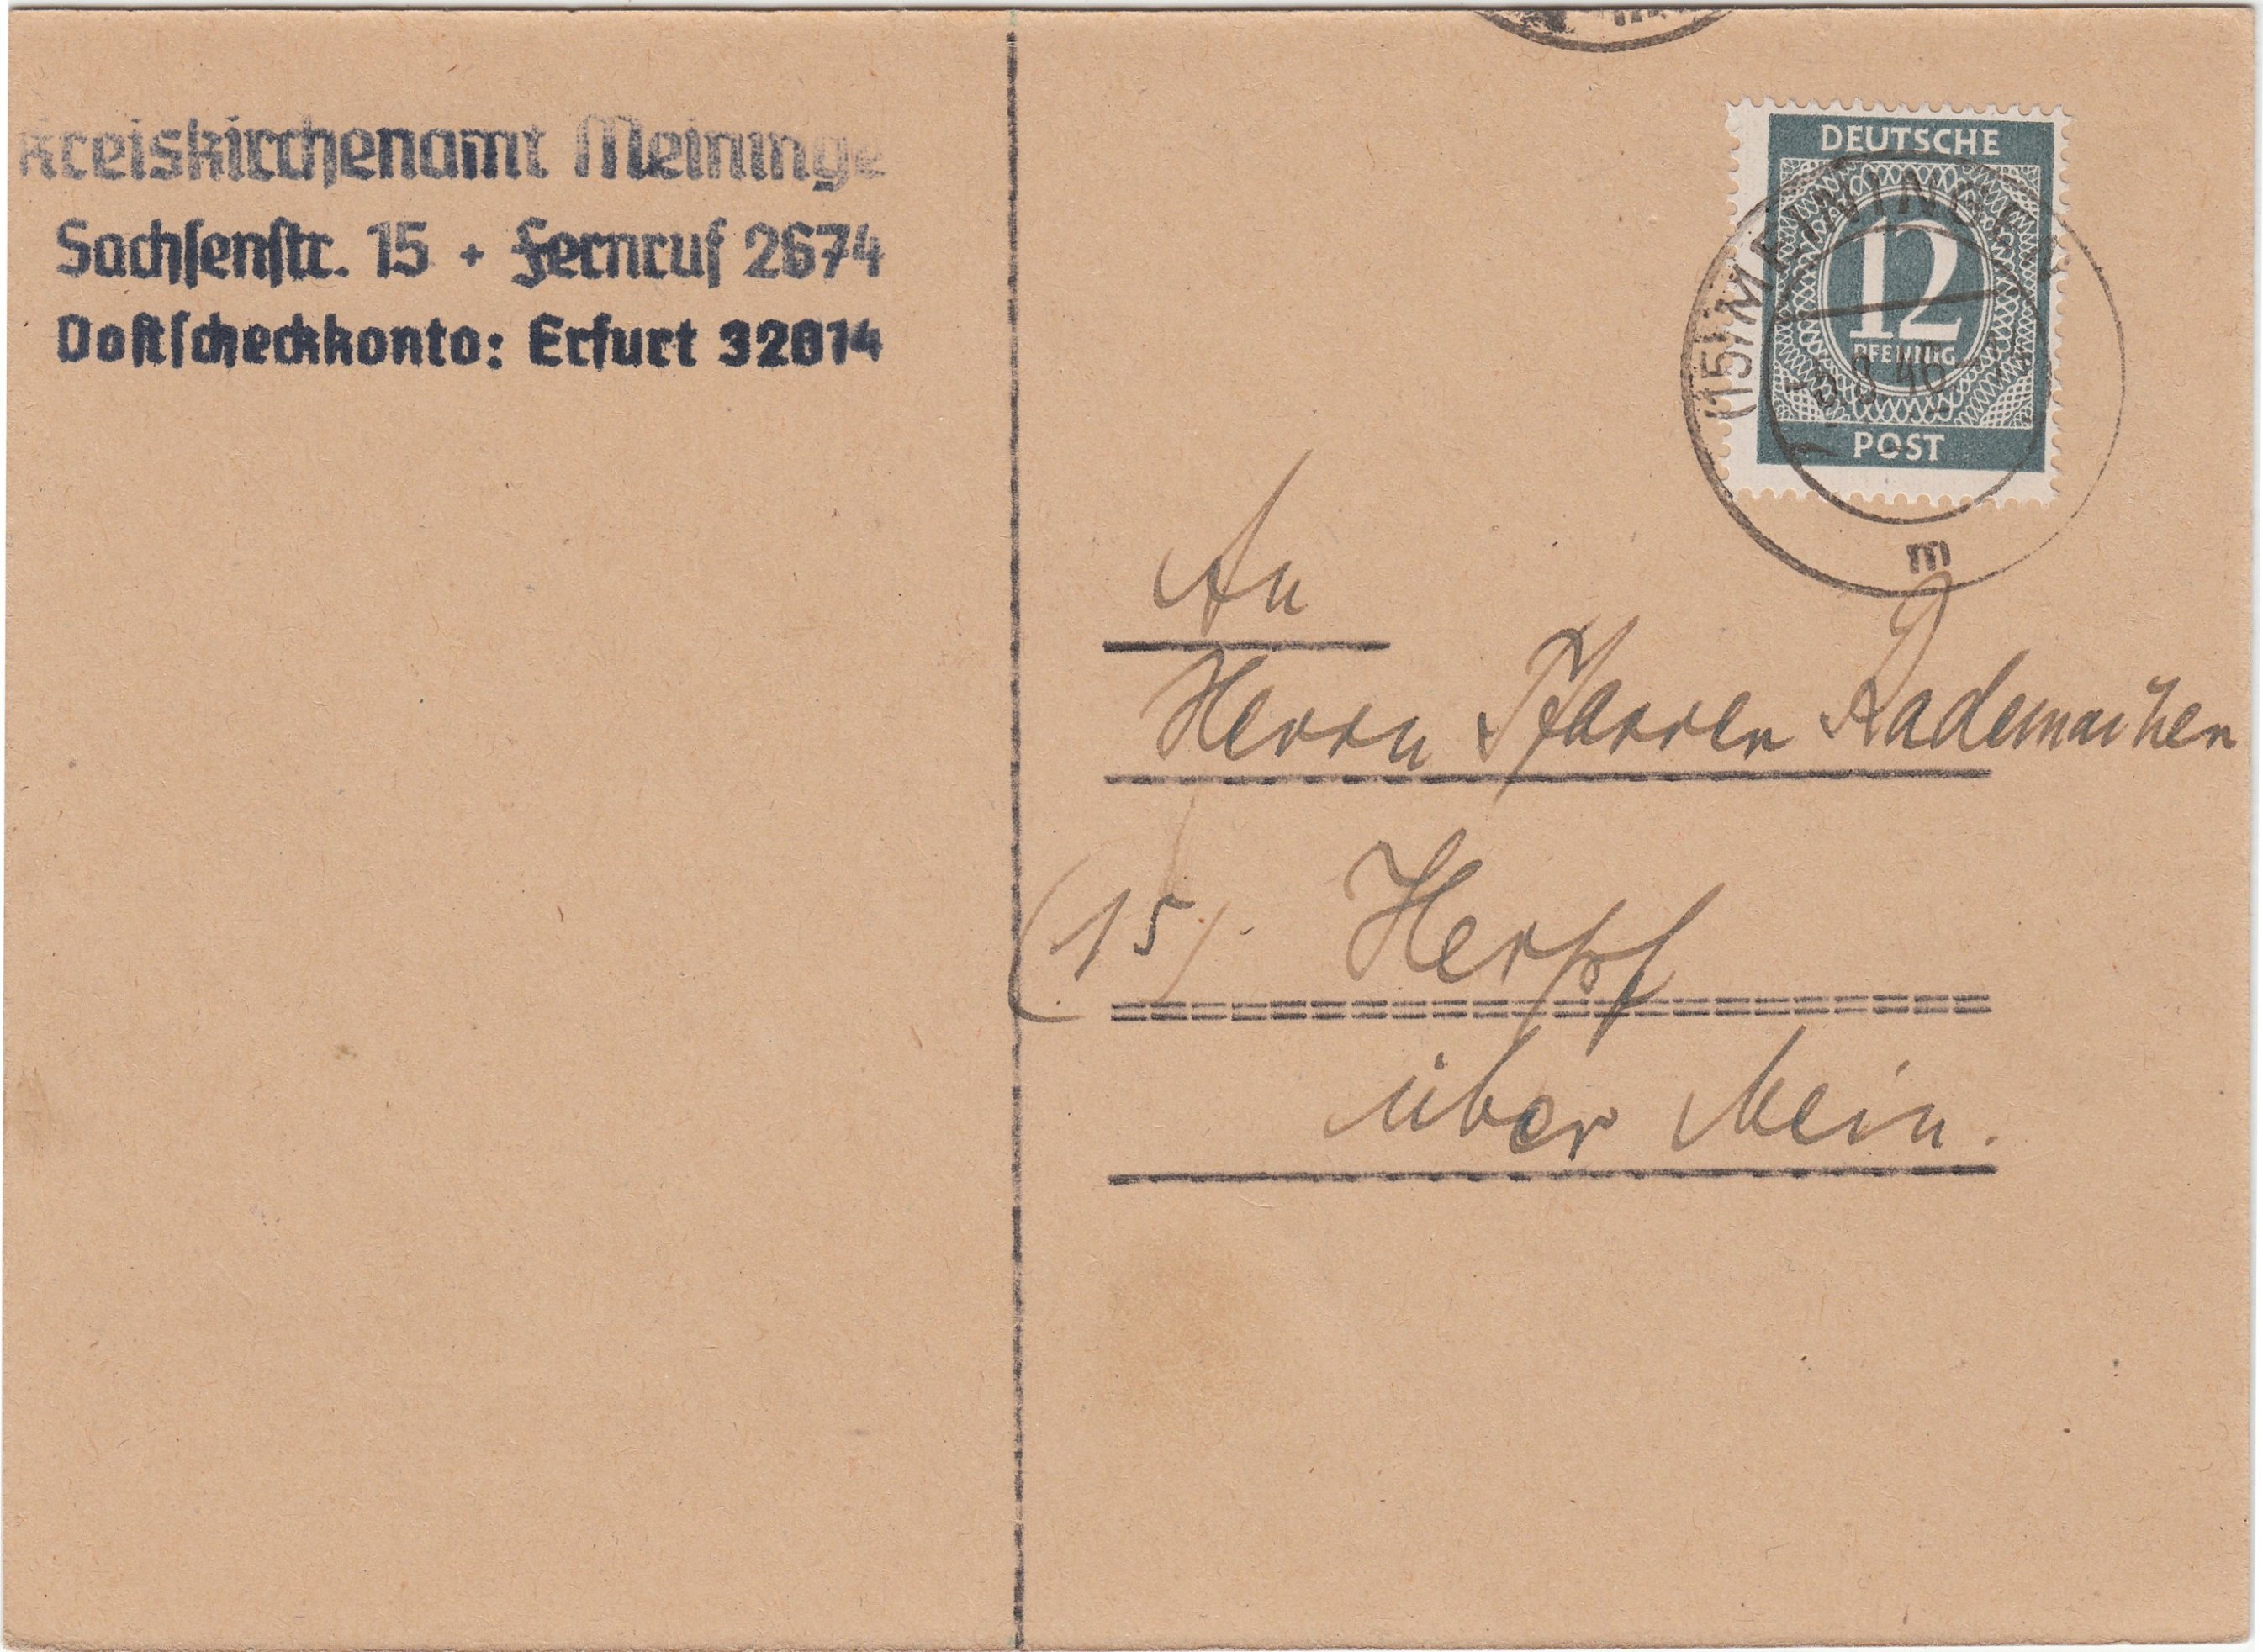 Kreiskirchenamt Meininge
Sachsenstr. 15 + Fernruf 2674
Postscheckkonto: Erfurt 32014
DEUTSCHE
12
PFENNIG
POST
(15) MEININGEN
46
m
An
Herrn Pfarrer Rademacher
(15) Herpf
über Mein.